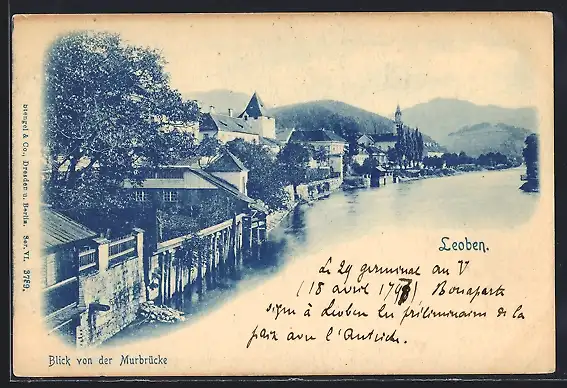 Stengel & Co., Dresden u. Berlin. Ser. VI. 3789.
Leoben.
Le 29 germinal an V
(18 avril 1797) Bonaparte
signe à Leoben les préliminaires de la
paix avec l'Autriche.
Blick von der Murbrücke